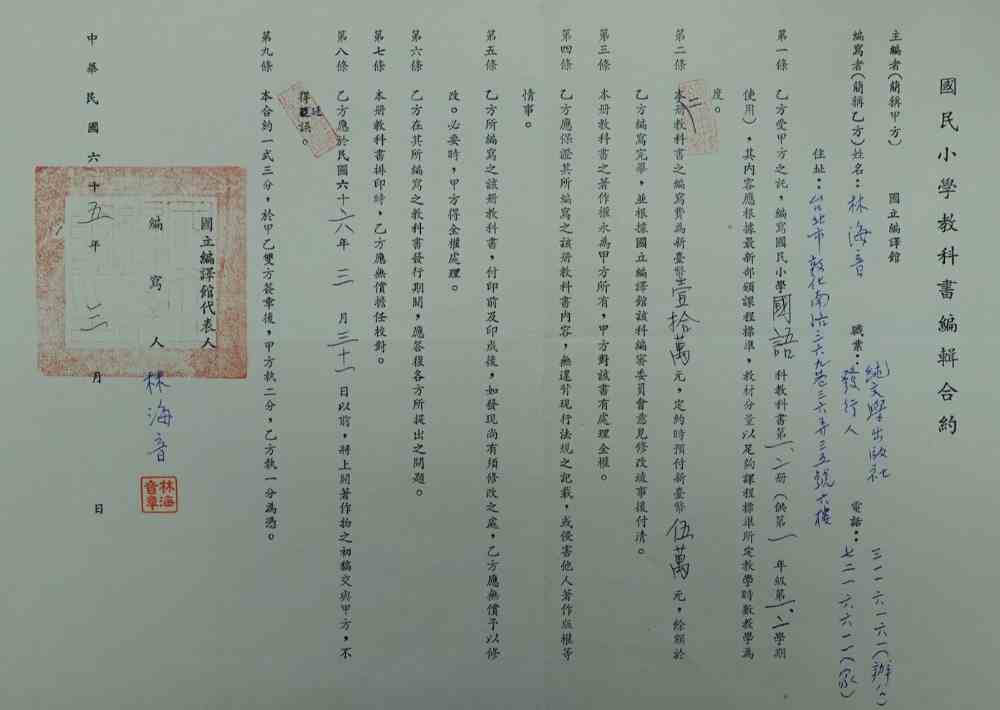 國民小學教科書編輯合約
主編者(簡稱甲方) 國立編譯館
編寫者(簡稱乙方)姓名:林海音 職業:純文學出版社發行人 電話:三一一六一六一(辦公) 七二一六六一一(家)
住址:台北市敦化南路三六九巷三六弄三五號六樓
第一條 乙方受甲方之託,編寫國民小學國語科教科書第一、二冊(供第一年級第一、二學期
使用),其內容應根據最新部頒課程標準,教材分量以足夠課程標準所定教學時數教學為
度。
第二條 本冊教科書之編寫費為新臺幣壹拾萬元,定約時預付新臺幣伍萬元,餘額於
乙方編寫完畢,並根據國立編譯館該科編審委員會意見修改竣事後付清。
第三條 本冊教科書之著作權永為甲方所有,甲方對該書有處理全權。
第四條 乙方應保證其所編寫之該冊教科書內容,無違背現行法規之記載,或侵害他人著作版權等
情事。
第五條 乙方所編寫之該冊教科書,付印前及印成後,如發現尚有須修改之處,乙方應無償予以修
改。必要時,甲方得全權處理。
第六條 乙方在其所編寫之教科書發行期間,應答復各方所提出之問題。
第七條 本冊教科書排印時,乙方應無償擔任校對。
第八條 乙方應於民國六十六年三月三十一日以前,將上開著作物之初稿交與甲方,不
得延誤。
第九條 本合約一式三分,於甲乙雙方簽章後,甲方執二分,乙方執一分為憑。
國立編譯館代表人
編寫人 林海音
林海音章
中華民國六十五年 月 日